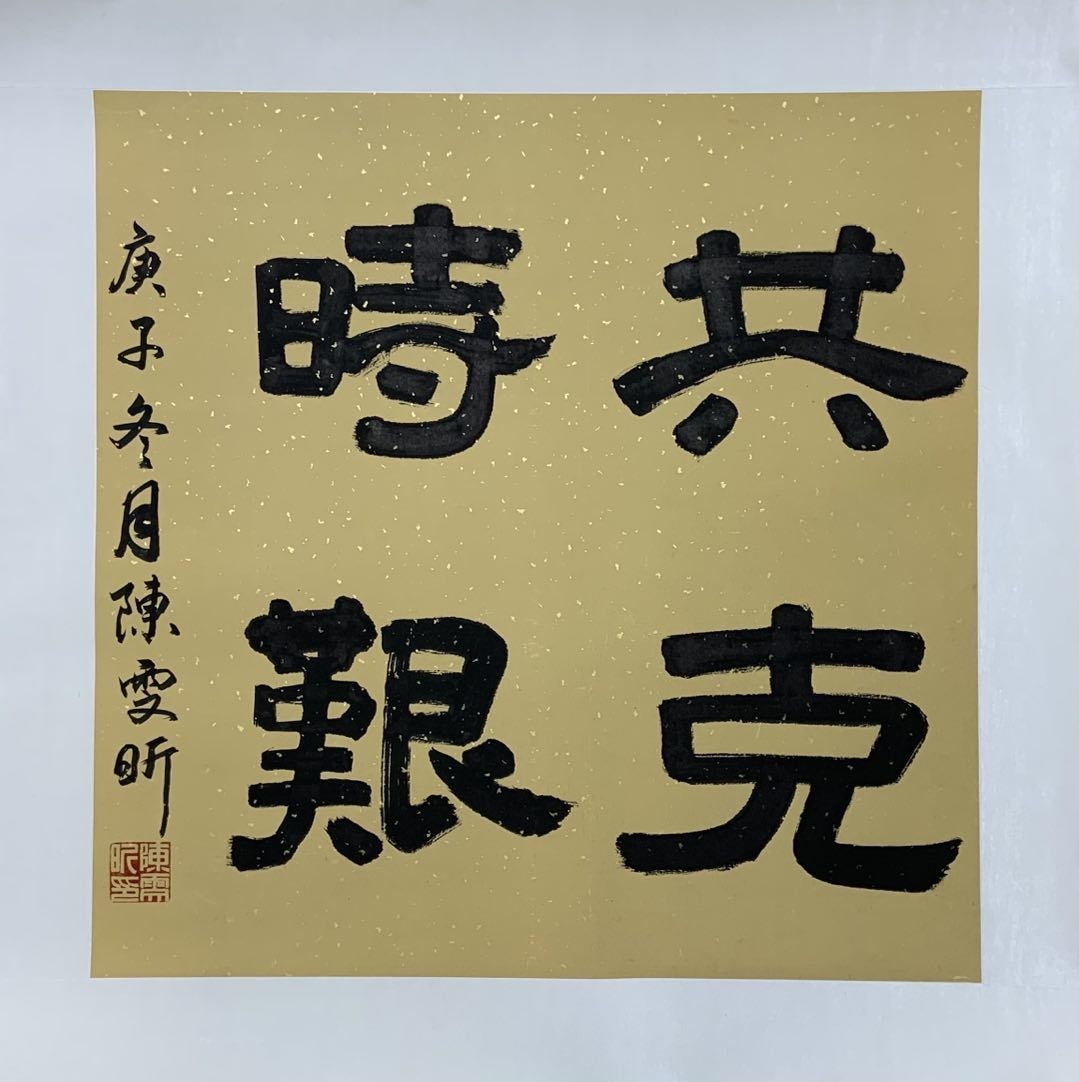 共克
時艱
庚子冬月陳雯昕
陳雯
昕印